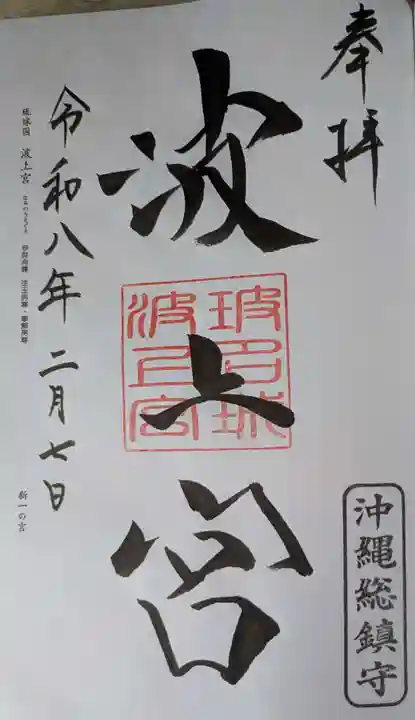 奉拝
沖縄総鎮守
波上宮
波上宮
令和八年二月七日
琉球国 波上宮 なみのうえぐう 伊弉冉尊 速玉男尊・事解男尊
新一の宮